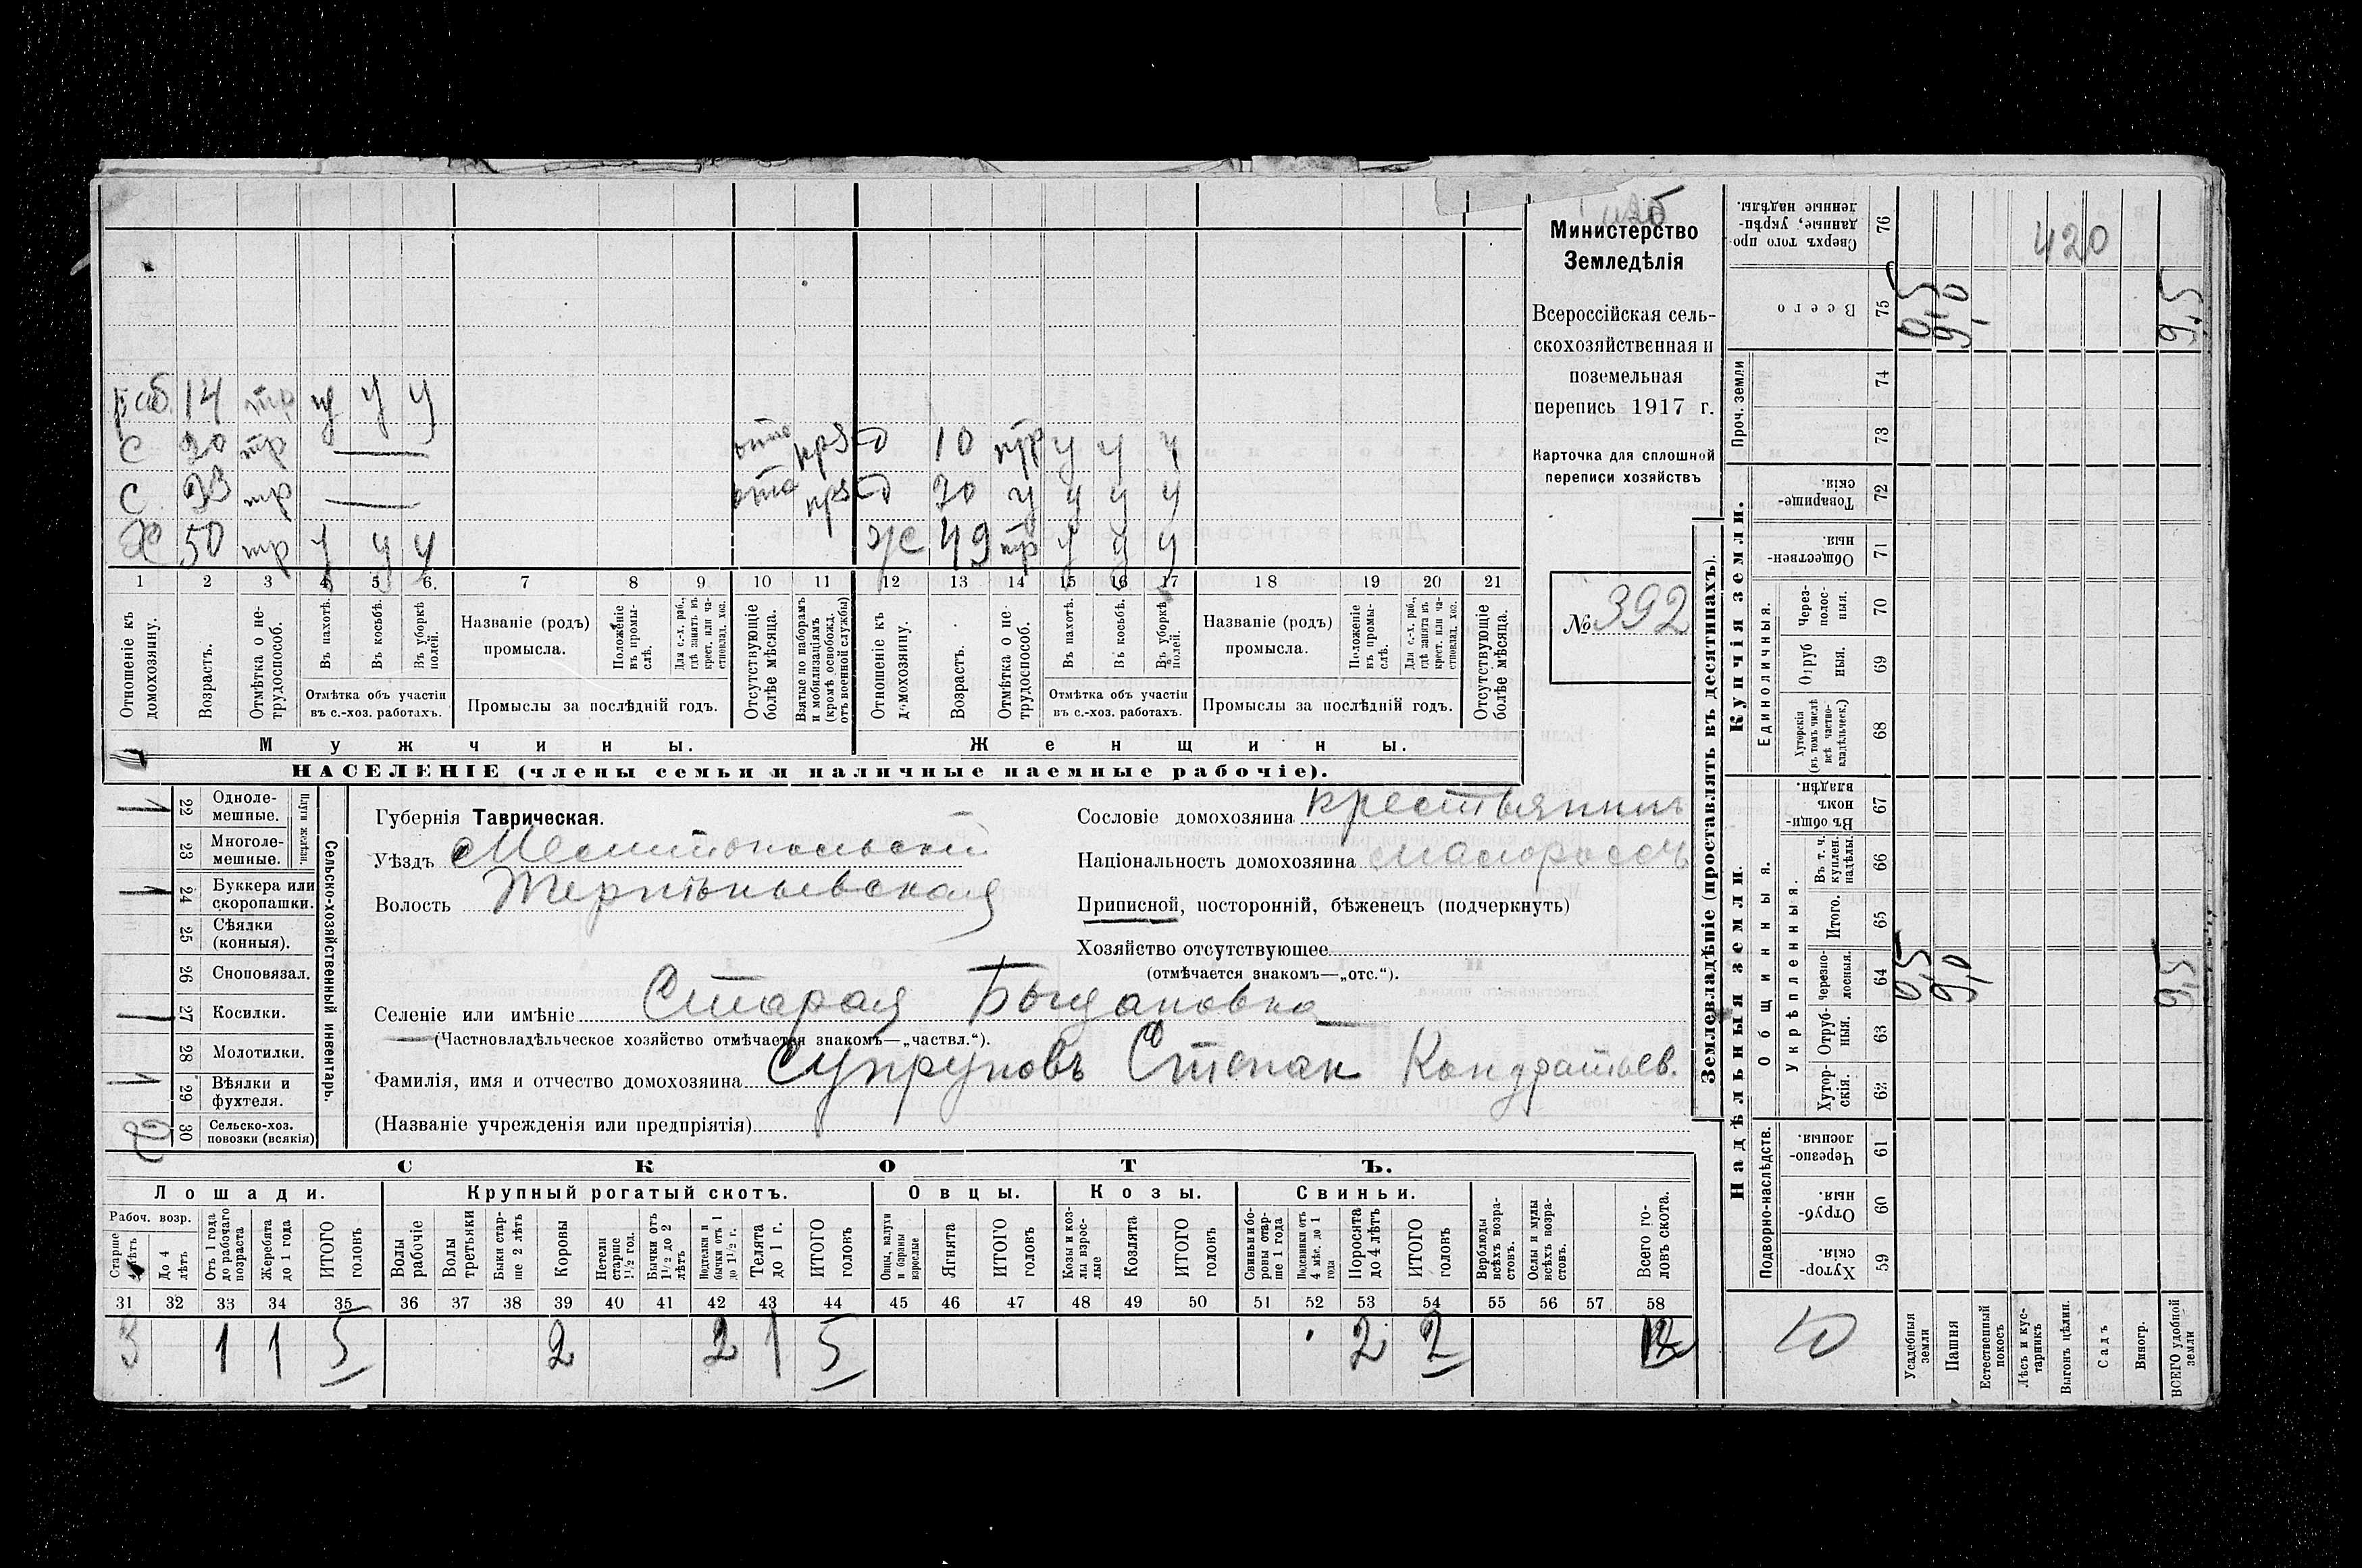 420
Министерство
Земледѣлія
Всероссійская сель-
скохозяйственная и
поземельная
перепись 1917 г.
Карточка для сплошной
переписи хозяйствъ
№ 392
раб. 14 тр у у у
С 20 тр — отс крs D 10 тр у у у
С 23 тр — отс крs D 20 у у у у
Х 50 тр у у у ж 49 тр у у у
1 2 3 4 5 6. 7 8 9 10 11 12 13 14 15 16 17 18 19 20 21
Отношеніе къ домохозяину.
Возрастъ.
Отмѣтка о не-трудоспособ.
Въ пахотѣ.
Въ косьбѣ.
Въ уборкѣ полей.
Отмѣтка объ участіи въ с.-хоз. работахъ.
Названіе (родъ) промысла.
Положеніе въ промы-слѣ.
Для с.-х. раб., гдѣ занятъ въ крест. или ча-стновлад. хоз.
Промыслы за послѣдній годъ.
Отсутствующіе болѣе мѣсяца.
Взятые по наборамъ и мобилизаціямъ (кромѣ освобожд. отъ военной службы)
Отношеніе къ домохозяину.
Возрастъ.
Отмѣтка о не-трудоспособ.
Въ пахотѣ.
Въ косьбѣ.
Въ уборкѣ полей.
Отмѣтка объ участіи въ с.-хоз. работахъ.
Названіе (родъ) промысла.
Положеніе въ промы-слѣ.
Для с.-х. раб., гдѣ занята въ крест. или ча-стновлад. хоз.
Промыслы за послѣдній годъ.
Отсутствующіе болѣе мѣсяца.
Мужчины. Женщины.
НАСЕЛЕНІЕ (члены семьи и наличные наемные рабочіе).
Сельско-хозяйственный инвентарь.
Плуги желѣзн.
1 22 Одноле-мешные.
23 Многоле-мешные.
1 24 Буккера или скоропашки.
25 Сѣялки (конныя).
26 Сноповязал.
1 27 Косилки.
28 Молотилки.
1 29 Вѣялки и фухтеля.
2 30 Сельско-хоз. повозки (всякія)
Губернія Таврическая.
Уѣздъ Мелитопольскій
Волость Терпѣньевская
Сословіе домохозяина крестьянинъ
Національность домохозяина малороссъ
Приписной, посторонній, бѣженецъ (подчеркнуть)
Хозяйство отсутствующее
(отмѣчается знакомъ—„отс.“).
Селеніе или имѣніе Старая Богдановка
(Частновладѣльческое хозяйство отмѣчается знакомъ—„частвл.“).
Фамилія, имя и отчество домохозяина Супруновъ Степан Кондратьев.
(Названіе учрежденія или предпріятія)
СКОТЪ.
Лошади. Крупный рогатый скотъ. Овцы. Козы. Свиньи.
Рабоч. возр.
До 4 лѣтъ
Отъ 1 года до рабочаго возраста
Жеребята до 1 года
ИТОГО головъ
Волы рабочіе
Волы третьяки
Быки стар-ше 2 лѣтъ
Коровы
Нетели старше 1½ год.
Бычки отъ 1½ до 2 лѣтъ
Подтелки и бычки отъ 1 до 1½ г.
Телята до 1 г.
ИТОГО головъ
Овцы, валухи и бараны взрослые
Ягнята
ИТОГО головъ
Козы и коз-лы взрос-лые
Козлята
ИТОГО головъ
Свиньи и бо-ровы стар-ше 1 года
Подсвинки отъ 4 мѣс. до 1 года
Поросята до 4 лѣтъ
ИТОГО головъ
Верблюды всѣхъ возра-стовъ.
Ослы и мулы всѣхъ возра-стовъ.
Всего го-ловъ скота.
31 32 33 34 35 36 37 38 39 40 41 42 43 44 45 46 47 48 49 50 51 52 53 54 55 56 57 58
3 1 1 5 2 2 1 5 2 2 12
Землевладѣніе (проставлять въ десятинахъ).
Надѣльныя земли. Купчія земли.
Подворно-наслѣдств.
Общинныя.
Укрѣпленныя.
Единоличныя.
Проч. земли
59 Хутор-скія.
60 Отруб-ныя.
61 Черезпо-лосныя.
62 Хутор-скія.
63 Отруб-ныя.
64 Черезпо-лосныя. 0,5 9,0 9,5
65 Итого.
66 Въ т. ч. куплен. надѣлы
67 Въ общи-номъ владѣн.
68 Хуторскія (въ томъ числѣ всѣ частно-владѣльческ.)
69 Отруб ныя.
70 Через-полос-ныя.
71 Обществен-ныя.
72 Товарище-скія.
73
74
75 Всего 0,5 9,0 9,5
76 Сверхъ того про-данные, укрѣп-ленные надѣлы.
420
10
Усадебныя земли
Пашня
Естественный покосъ
Лѣсъ и кус-тарникъ
Выгонъ цѣлин.
Садъ
Виногр.
ВСЕГО удобной земли